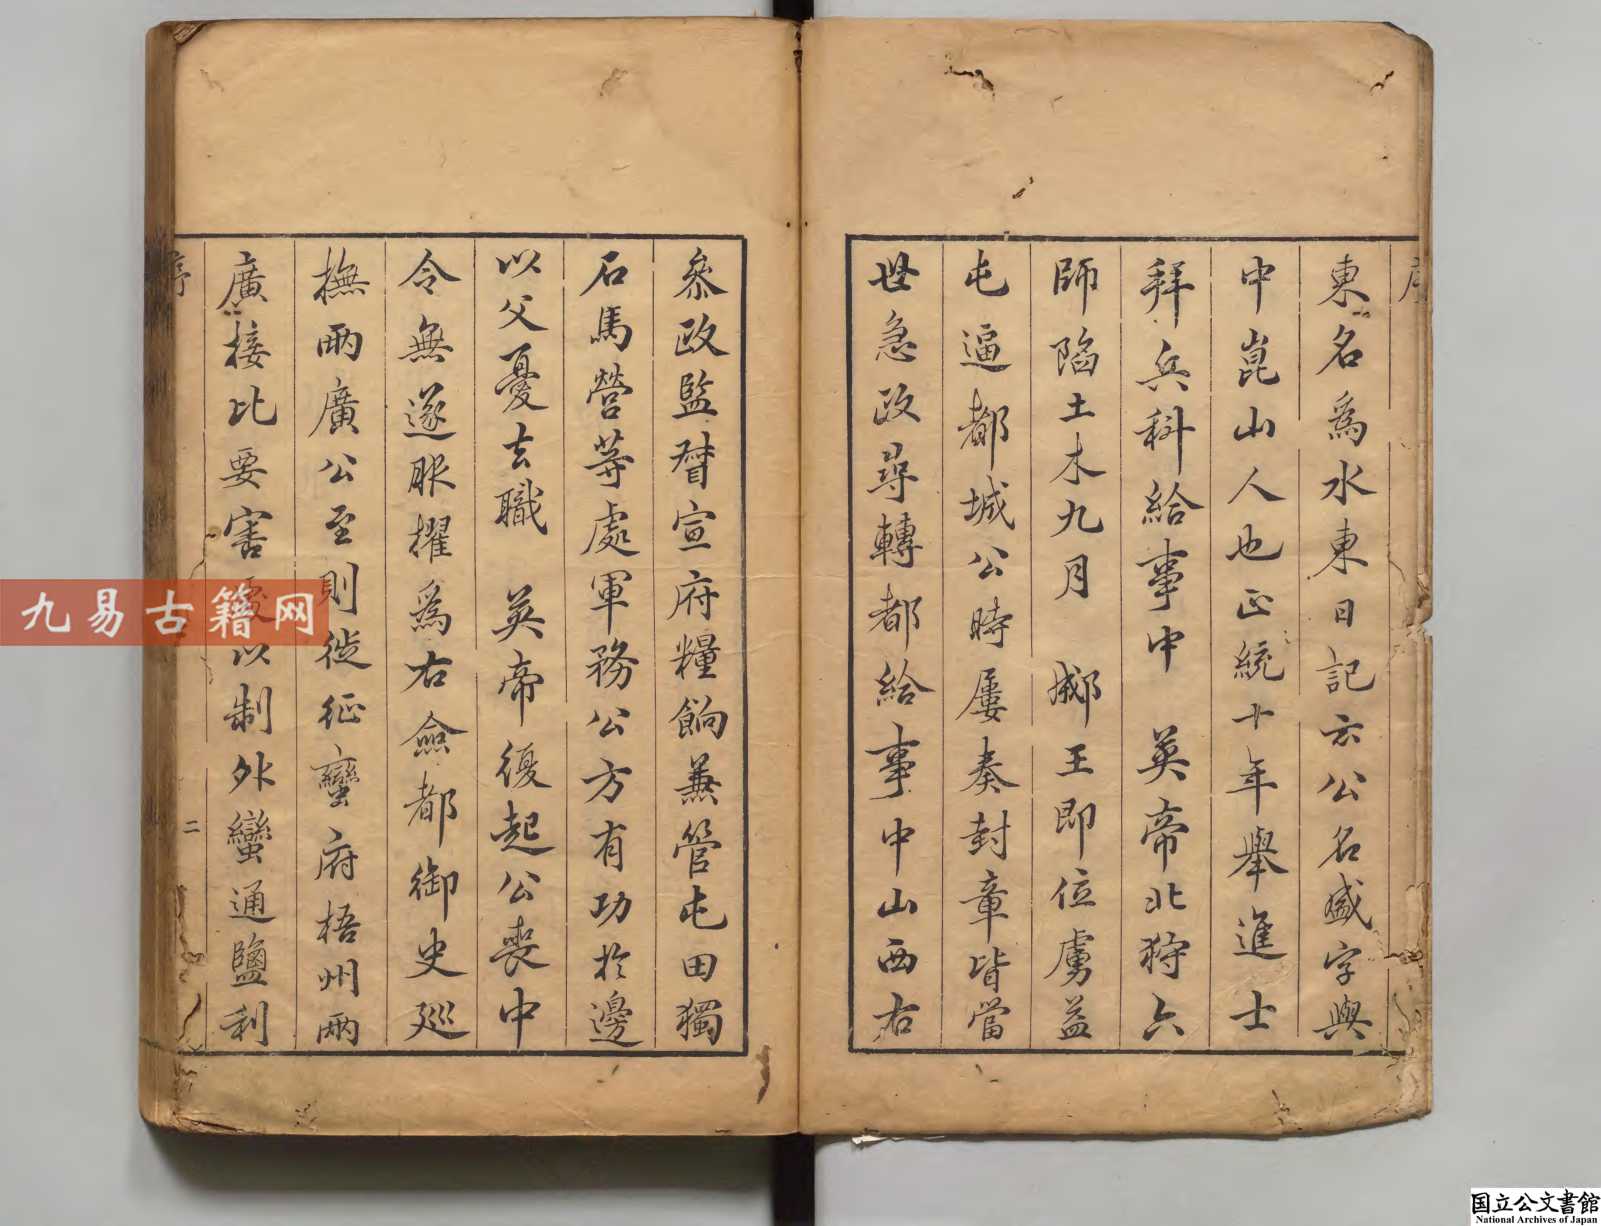 東名為水東日記云公名盛字與
中崑山人也正統十年舉進士
拜兵科給事中 英帝北狩六
師陷土木九月 郕王即位虜益
屯逼都城公時屢奏封章皆當
世急政尋轉都給事中山西右
參政監督宣府糧餉兼管屯田獨
石馬營等處軍務公方有功於邊
以父憂去職 英帝復起公喪中
令無遂服擢為右僉都御史廵
撫兩廣公至則從征蠻府梧州兩
廣接比要害處以制外蠻通鹽利
序
二
九易古籍网
国立公文書館
National Archives of Japan